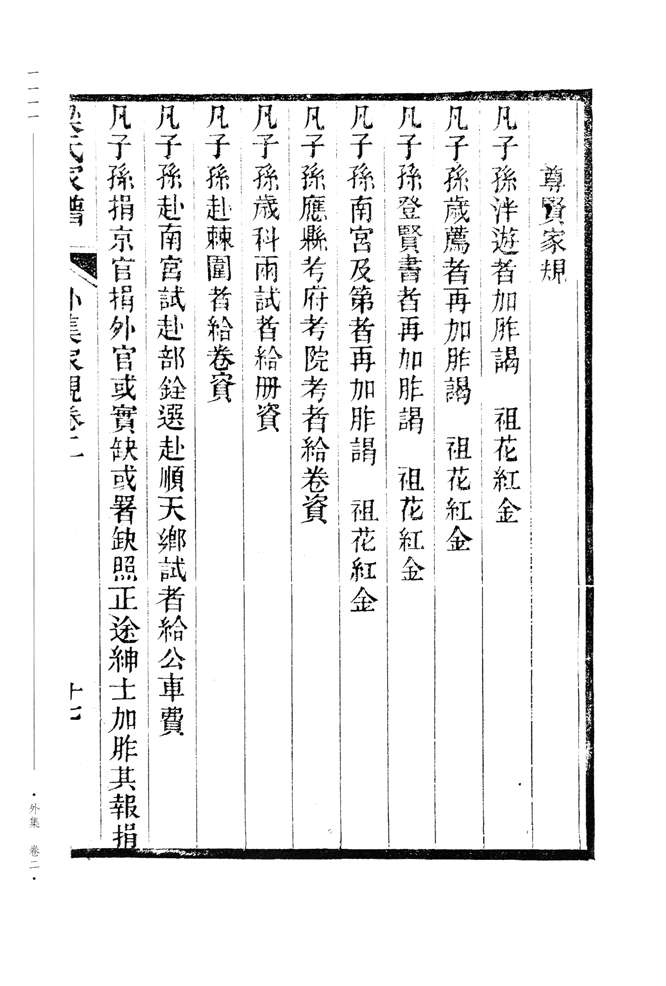 尊賢家規
凡子孫泮遊者加胙謁　祖花紅金
凡子孫歲薦者再加胙謁　祖花紅金
凡子孫登賢書者再加胙謁　祖花紅金
凡子孫南宮及第者再加胙謁　祖花紅金
凡子孫應縣考府考院考者給卷資
凡子孫歲科兩試者給册資
凡子孫赴棘圍者給卷資
凡子孫赴南宮試赴部銓選赴順天鄉試者給公車費
凡子孫捐京官捐外官或實缺或署缺照正途紳士加胙其報捐
梁氏家譜 外集家規卷二 十七
·外集　卷二·
一一一一